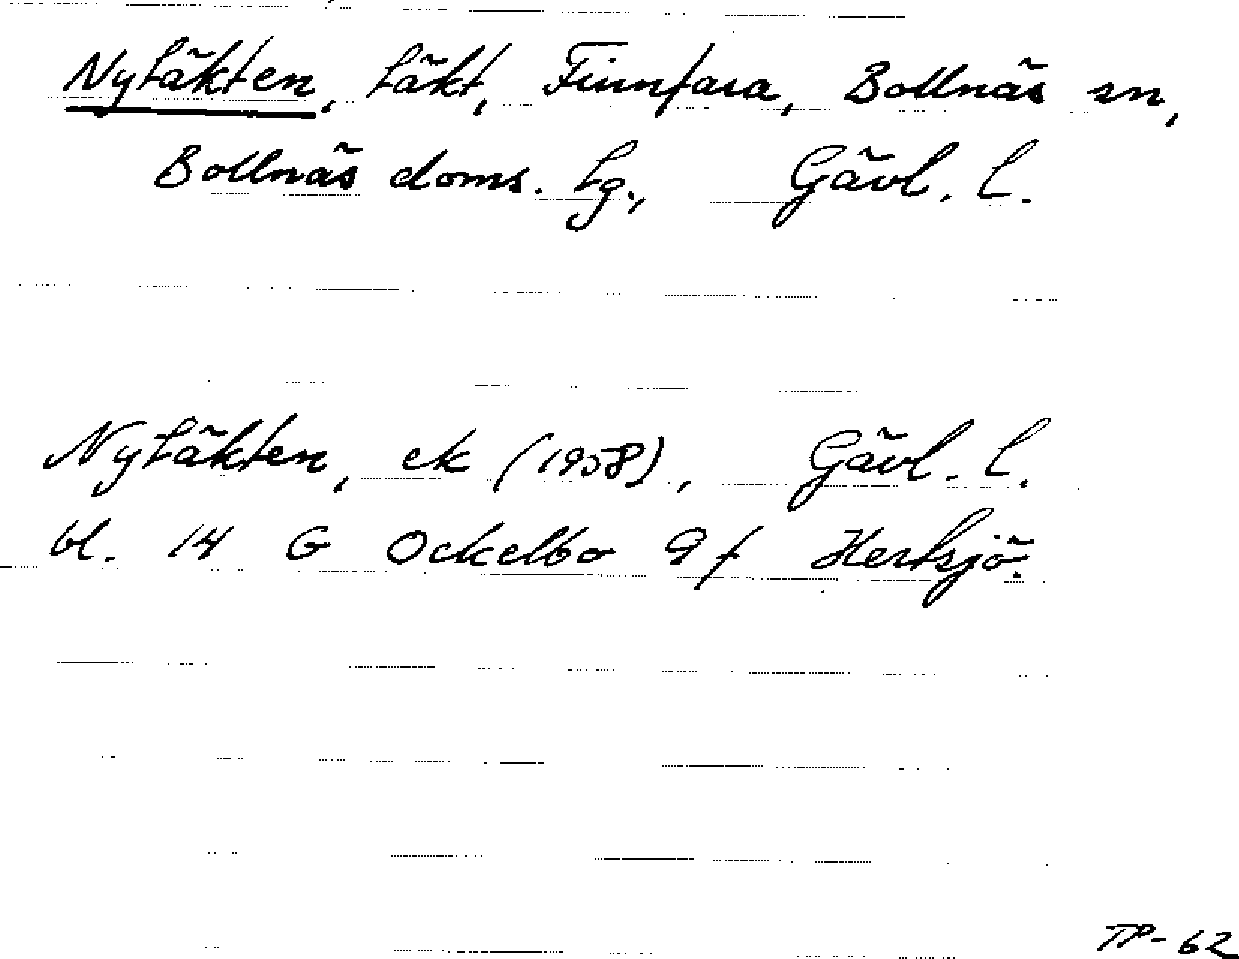 Nytäkten, täkt, Finnfara, Bollnäs sn,
Bollnäs doms. tg., Gävl. l.
Nytäkten, ek (1958), Gävl. l.
bl. 14 G Ockelbo 9 f Hertsjö.
TP-62